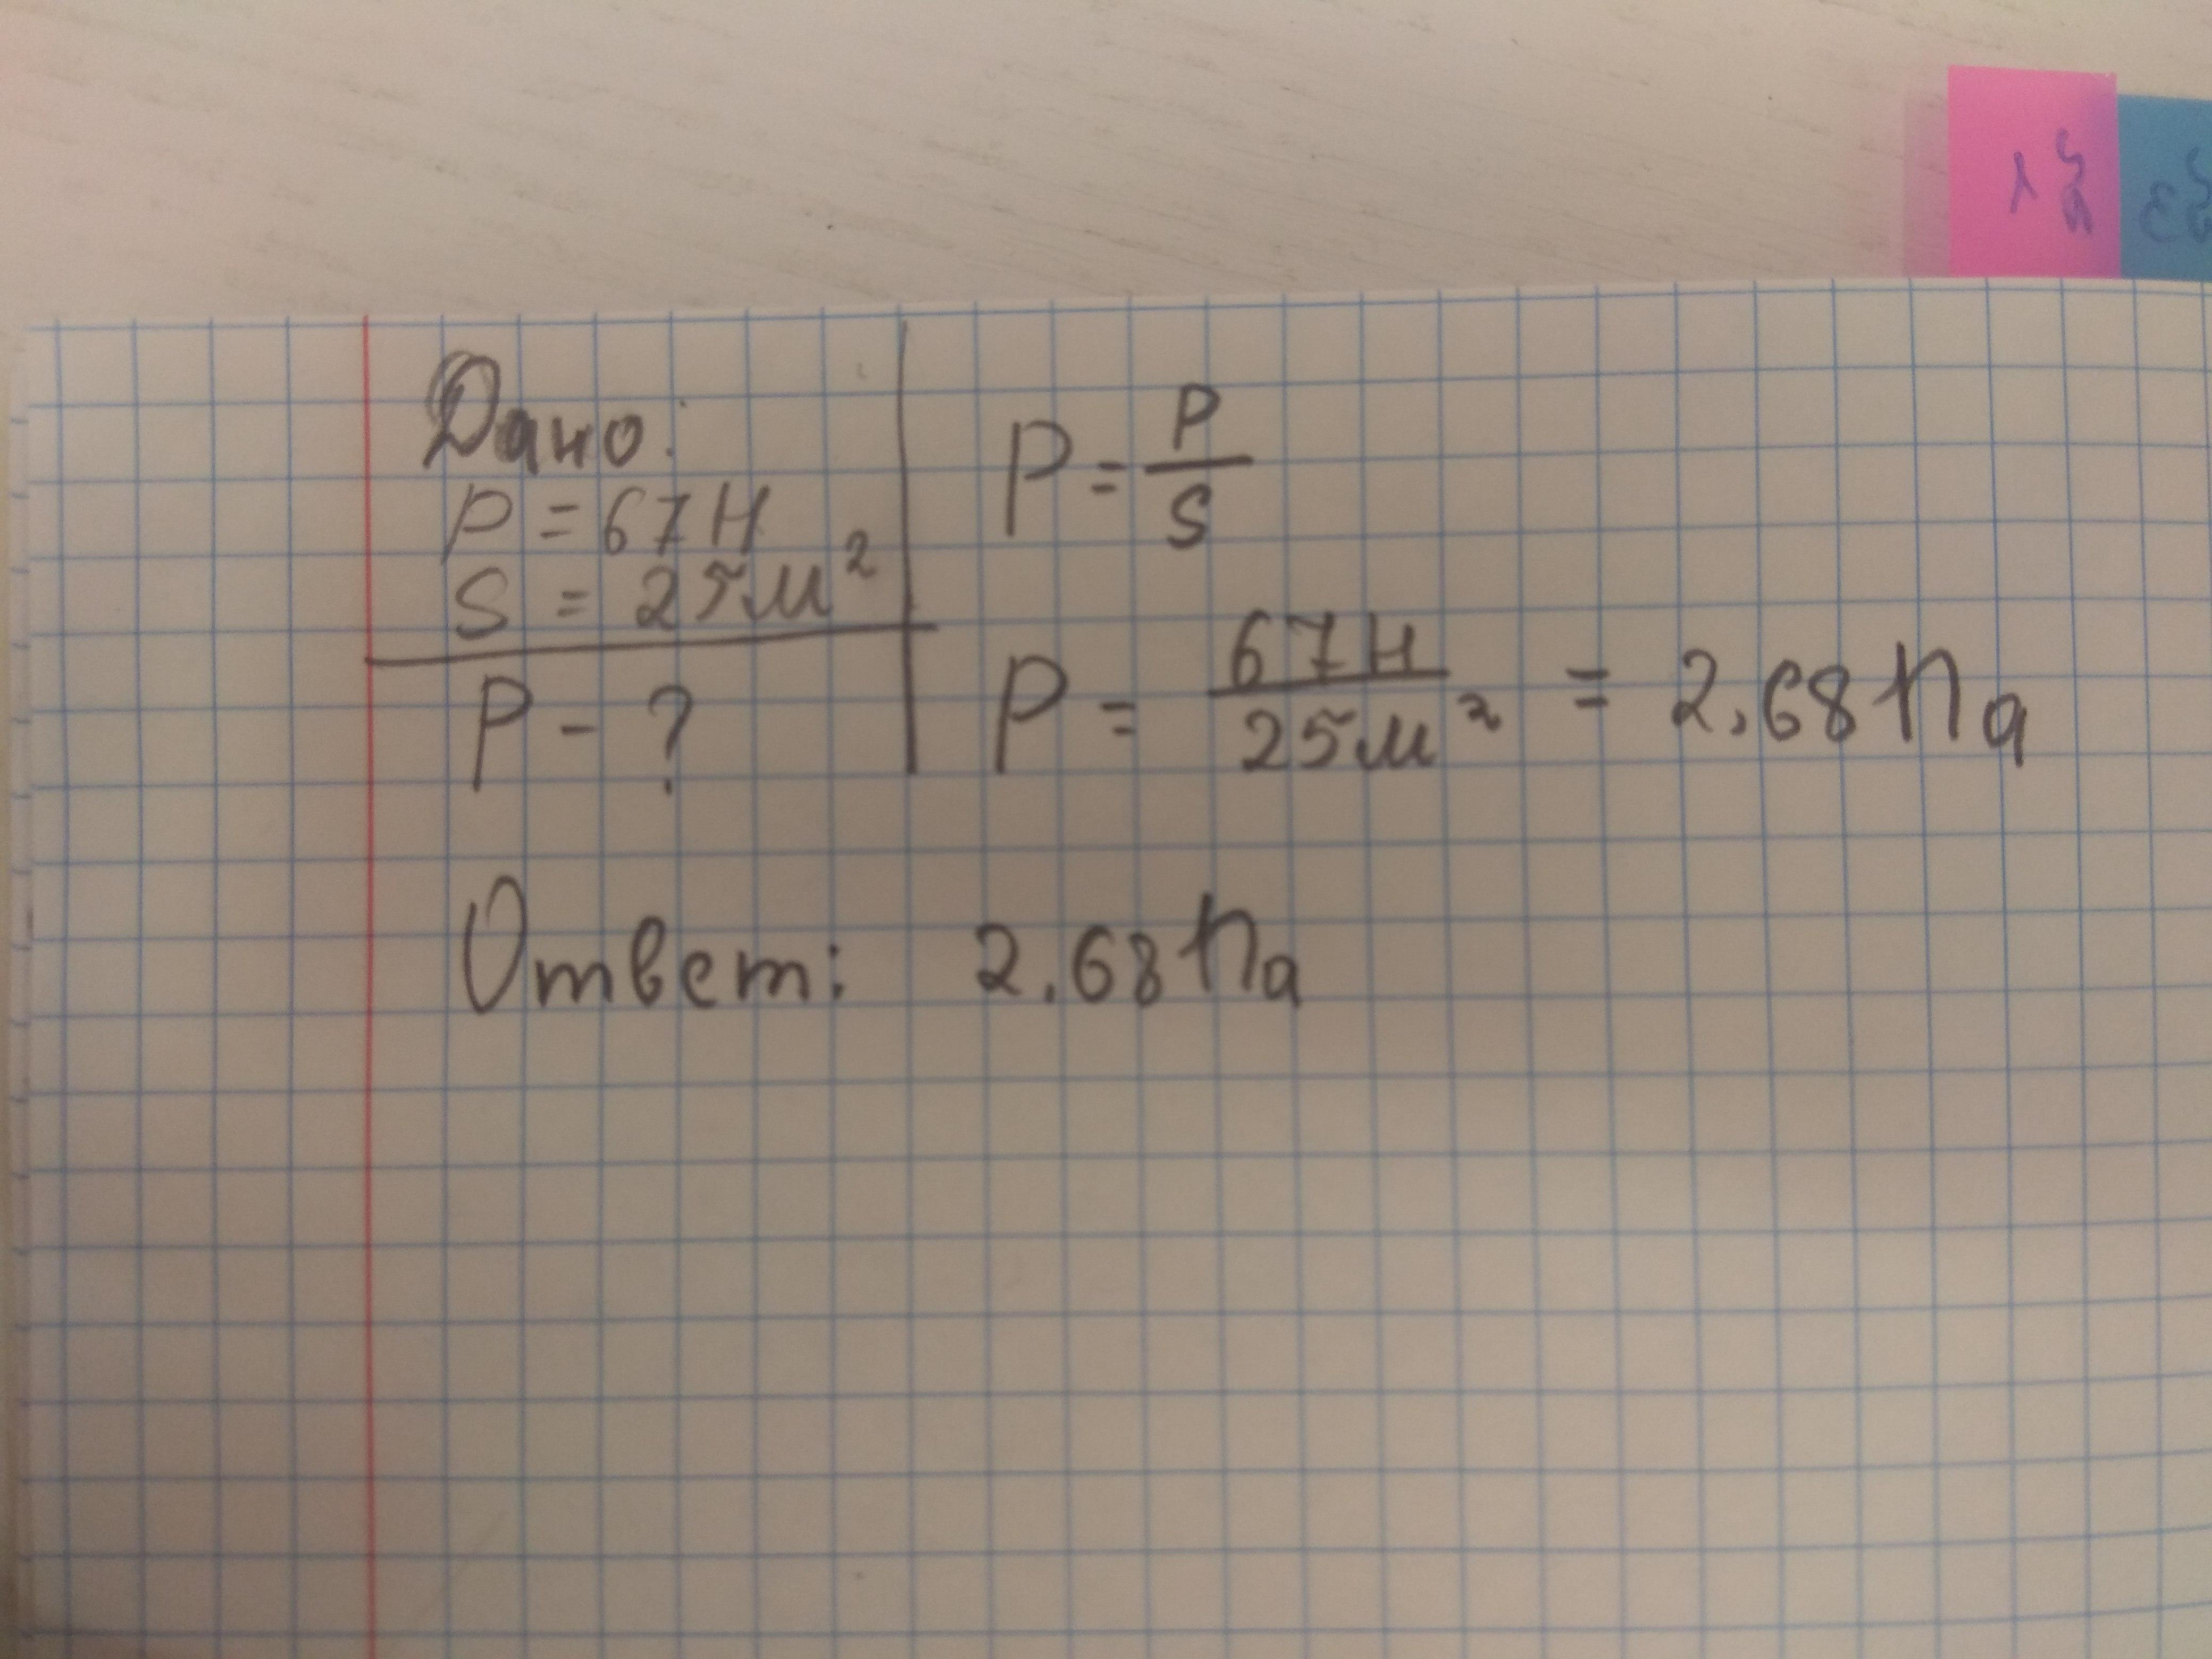 Дано:
P = 67Н
S = 25м²
P - ?
P = P/S
P = 67Н/25м² = 2.68Па
Ответ: 2.68Па